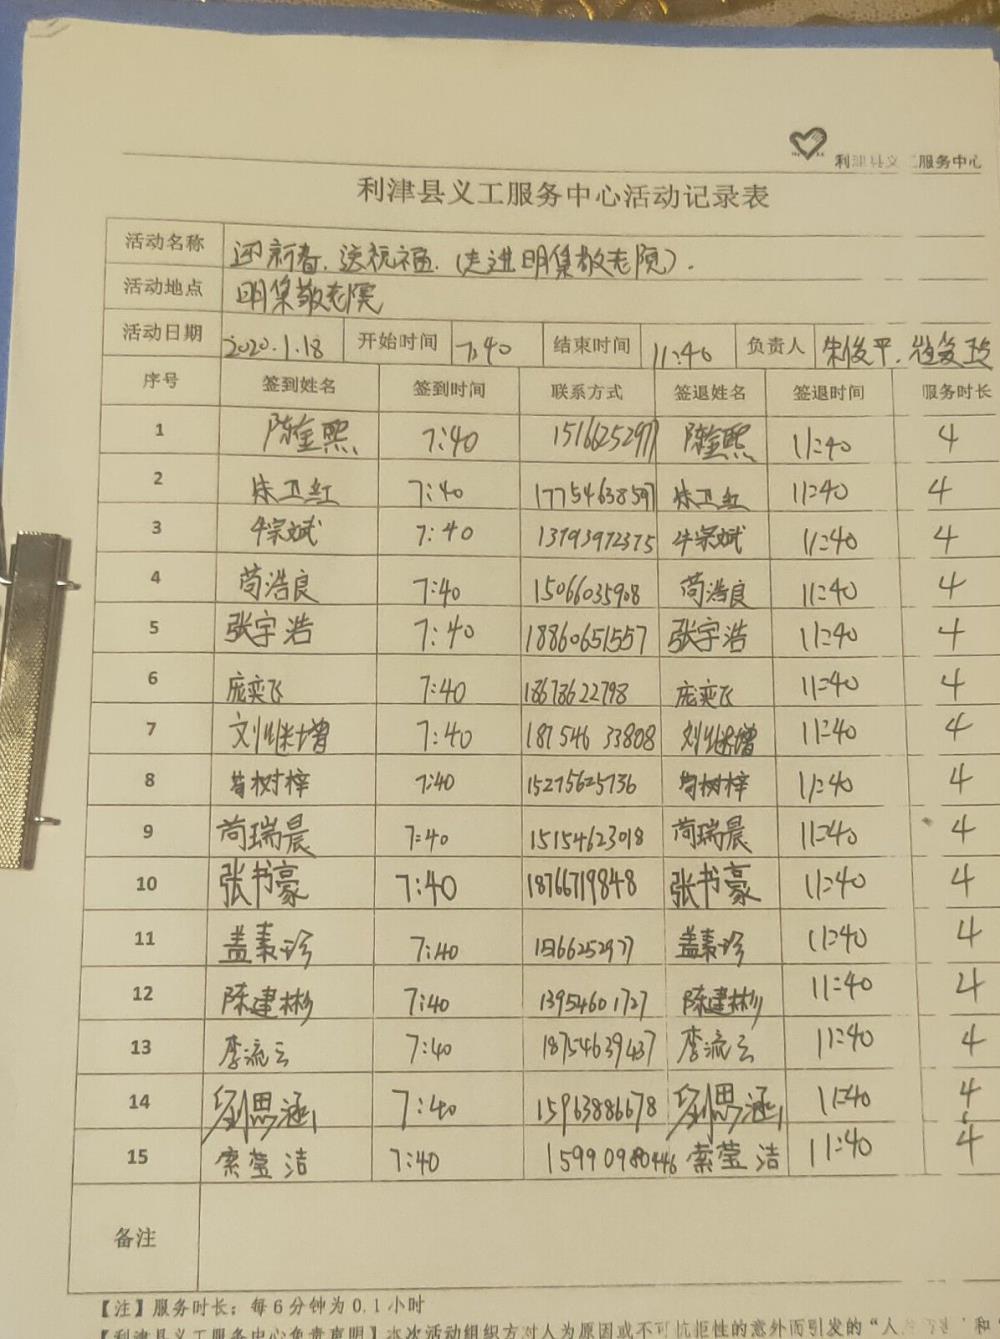 利津县义工服务中心
利津县义工服务中心活动记录表
活动名称 迎新春.送祝福.(走进明集敬老院).
活动地点 明集敬老院
活动日期 2020.1.18 开始时间 7:40 结束时间 11:40 负责人 朱俊平.
序号 签到姓名 签到时间 联系方式 签退姓名 签退时间 服务时长
1 陈金熙 7:40 1516625297 陈金熙 11:40 4
2 朱卫红 7:40 17754638597 朱卫红 11:40 4
3 牛宗斌 7:40 13793972375 牛宗斌 11:40 4
4 苟浩良 7:40 15066035908 苟浩良 11:40 4
5 张宇浩 7:40 18860651557 张宇浩 11:40 4
6 庞奕飞 7:40 18678622798 庞奕飞 11:40 4
7 刘继增 7:40 187546 33808 刘继增 11:40 4
8 苟树梓 7:40 15275625736 苟树梓 11:40 4
9 苟瑞晨 7:40 15154623018 苟瑞晨 11:40 4
10 张书豪 7:40 18766719848 张书豪 11:40 4
11 盖素珍 7:40 盖素珍 11:40 4
12 陈建彬 7:40 13954601727 陈建彬 11:40 4
13 李流云 7:40 18754639437 李流云 11:40 4
14 刘思涵 7:40 15963886678 刘思涵 11:40 4
15 索莹洁 7:40 15990980446 索莹洁 11:40 4
备注
【注】服务时长：每6分钟为0.1小时
【利津县义工服务中心免责声明】本次活动组织方对人为原因或不可抗拒性的意外而引发的“人身伤害”和